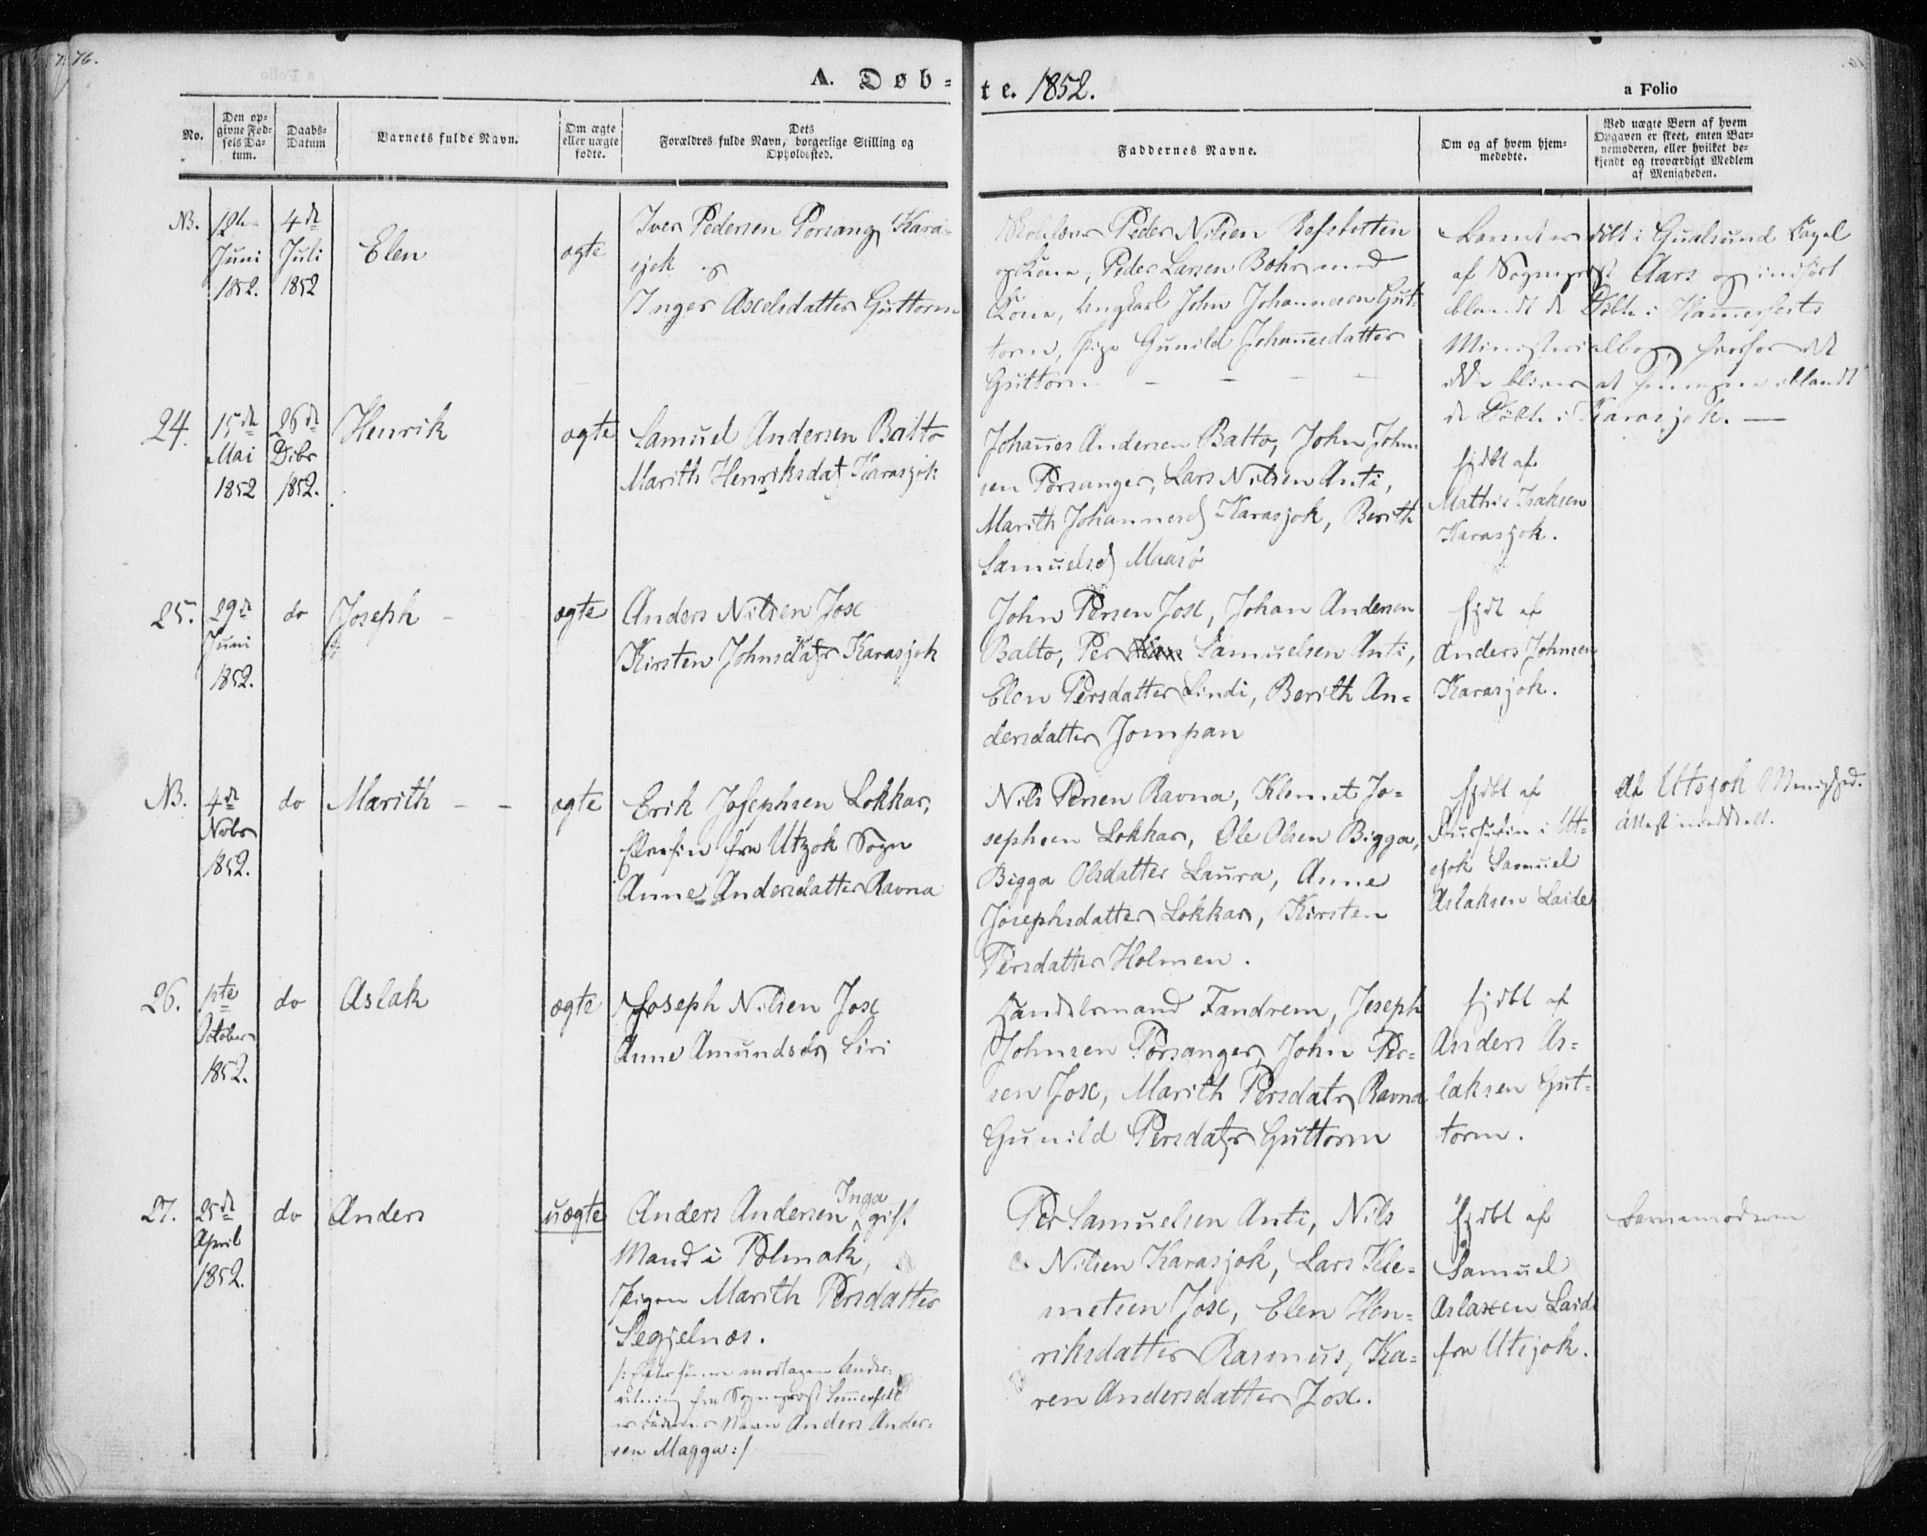 76.
A. Døb-
te. 1852.
a Folio
No.
Den op-
givne Fød-
sels Da-
tum.
Daabs-
Datum
Barnets fulde Navn.
Om ægte
eller uægte
fødte.
Dets
Forældres fulde Navn, borgerlige Stilling og
Opholdssted.
Faddernes Navne.
Om og af hvem hjem-
medøbte.
Ved uægte Børn af hvem
Opgaven er skeet, enten Bar-
nemoderen, eller hvilket be-
kjendt og troværdigt Medlem
af Menigheden.
NB.
Juni
1852.
4de
Juli
1852
Elen
ægte
Iver Pedersen Porsang Kara-
sjok og
Inger Axelsdatter Guttorm
Peder Nilsen
og Kone, Peder Larsen Bohr med
Kone, Ungkarl John Johannesen Gut-
torm, Pige Gunild Johannesdatter
Guttorm
Barnet er døbt i Gualsund Capel
af Sognepræst Aars og indført
blandt de Døbte i Hammerfests
Ministerialbog, hvorfor det
ikke bliver at iblandt
de Døbte i Karasjok.
24.
15de
Mai
1852
26de
Dcbr
1852.
Henrik
ægte
Samuel Andersen Balto
Marith Henriksdat Karasjok
Johannes Andersen Balto, John John-
sen Porsanger, Lars Nilsen Anti,
Marith Johannesd Karasjok, Berith
Samuelsd Maasø
hjdbt af
Mathis Isaksen
Karasjok.
25.
29de
Juni
1852.
do
Joseph
ægte
Anders Nilsen Jox
Kirsten Johnsdatr Karasjok
John Persen Jox, Johan Andersen
Balto, Per Samuelsen Anti,
Elen Persdatter Lindi, Berith An-
dersdatter Jompan
hjdbt af
Anders Johnsen
Karasjok.
NB.
4de
Nvbr
1852.
do
Marith
ægte
Erik Josephsen Lokkar,
fra Utzjok Sogn
Anne Andersdatter Ravna
Nils Persen Ravna, Klemet Jo-
sephsen Lokkar, Ole Olsen Bigga,
Bigga Olsdatter Laura, Anne
Josephsdatter Lokkar, Kirsten
Persdatter Holmen.
hjdbt af
i Ut-
sjok Samuel
Aslaksen Laide
Af Utsjok Menighed.
Attest meddelt.
26.
1ste
October
1852.
do
Aslak
ægte
Joseph Nilsen Jox
Anne Amundsdr Siri
Handelsmand Fandrem, Joseph
Johnsen Porsanger, John Per-
sen Jox, Marith Persdatr Ravna
Gunild Persdatr Guttorm
hjdbt af
Anders As-
laksen Gut-
torm.
27.
25de
April
1852.
do
Anders
uægte
Anders Andersen Inga gift
Mand i Polmak,
Pigen Marith Persdatter
Segjelnæs.
/: Efter senere modtagen Under-
retning fra Sognepræst Sommerfelt
er Faderens Navn Anders Ander-
sen Magga :/
Per Samuelsen Anti, Nils
Nilsen Karasjok, Lars Kle-
metsen Jox, Elen Hen-
riksdatter Rasmus, Ka-
ren Andersdatter Jox.
hjdbt af
Samuel
Aslaxen Laide
fra Utsjok.
Barnemoderen